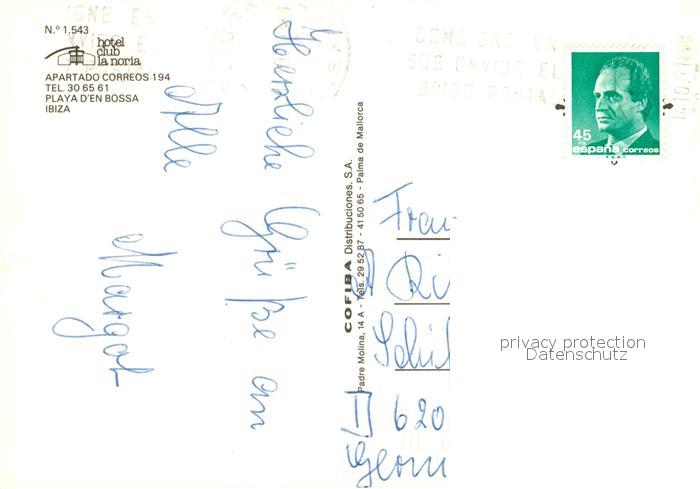 N.º 1,543
hotel
club
la noria
APARTADO CORREOS 194
TEL. 30 65 61
PLAYA D'EN BOSSA
IBIZA
Herzliche
Grüße am
Alle
Margot
COFIBA Distribuciones, S.A.
Padre Molina, 14 A - Tels. 29 52 87 - 41 50 65 - Palma de Mallorca
CONSIGNE EN
SUS ENVIOS EL
CODIGO POSTAL
45
PTA
españa correos
F.N.M.T.
Frau
Ri
Schil
D 620
Germ
privacy protection
Datenschutz